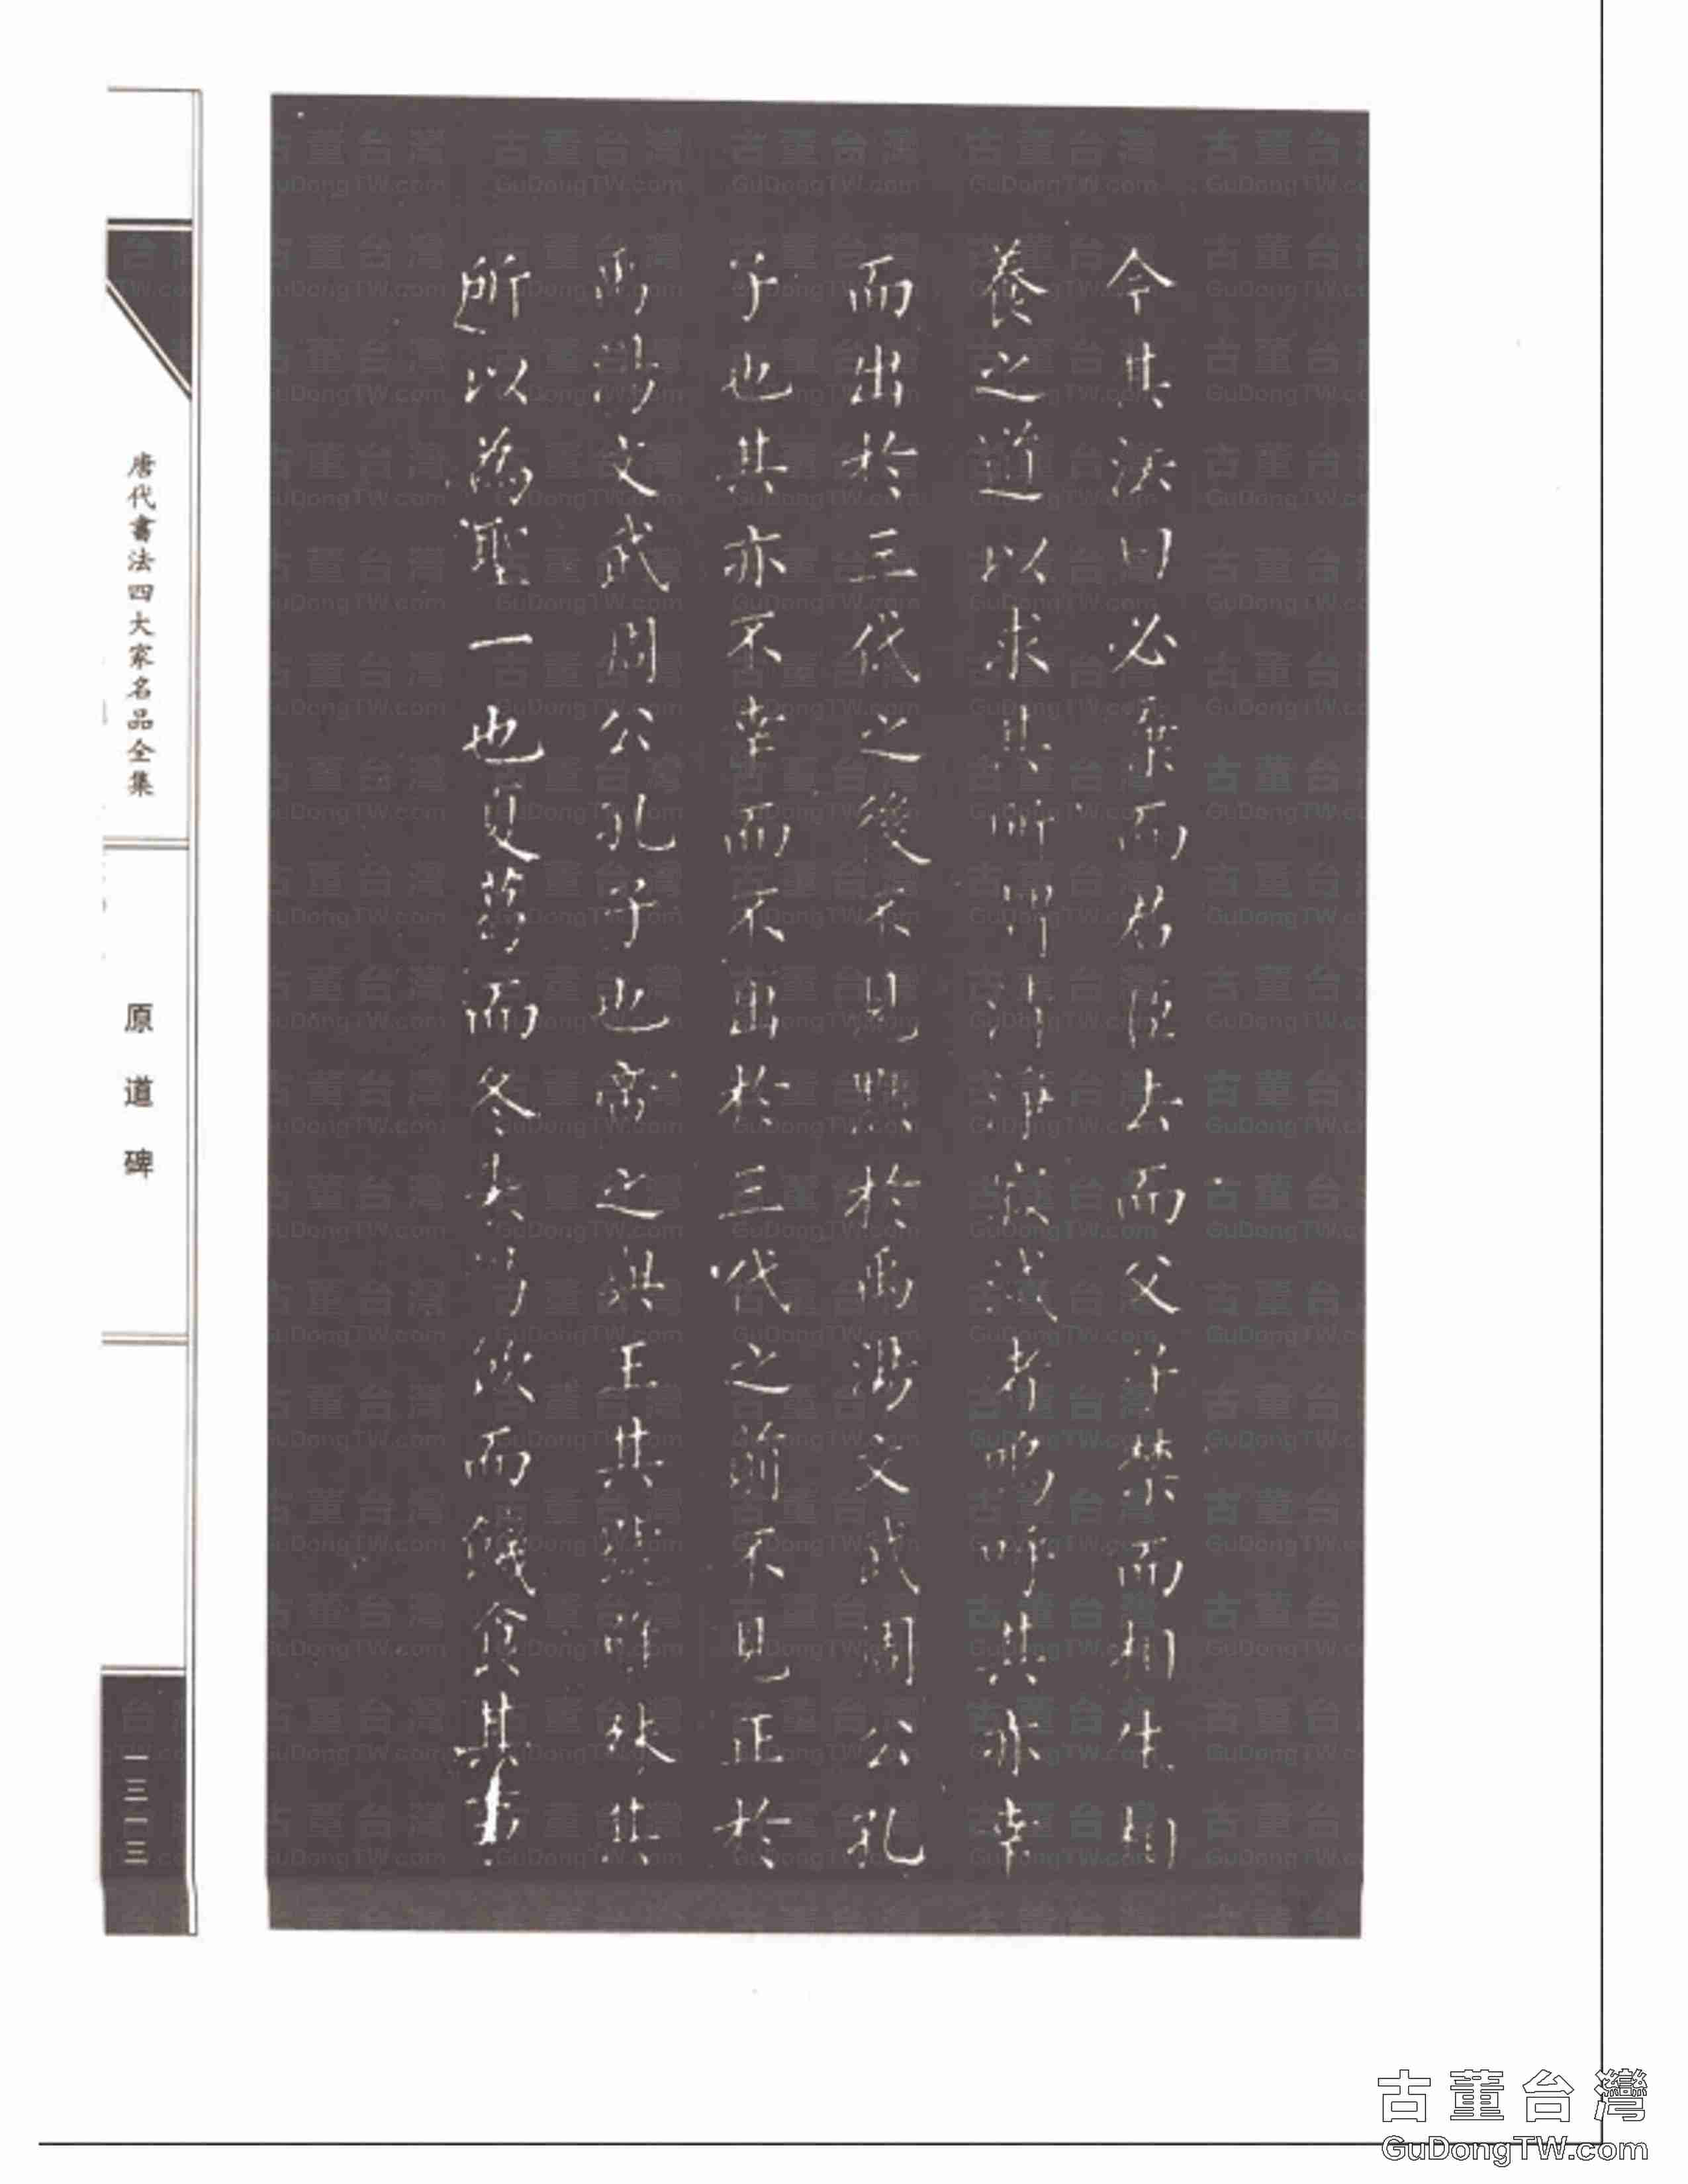 今其法曰必棄而君臣去而父子禁而相生相
養之道以求其所謂清淨寂滅者嗚呼其亦幸
而出於三代之後不見黜於禹湯文武周公孔
子也其亦不幸而不出於三代之前不見正於
禹湯文武周公孔子也帝之與王其號雖殊其
所以為聖一也夏葛而冬裘渴飲而饑食其
唐代書法四大家名品全集
原道碑
一三一三
古董台灣
GuDongTW.com